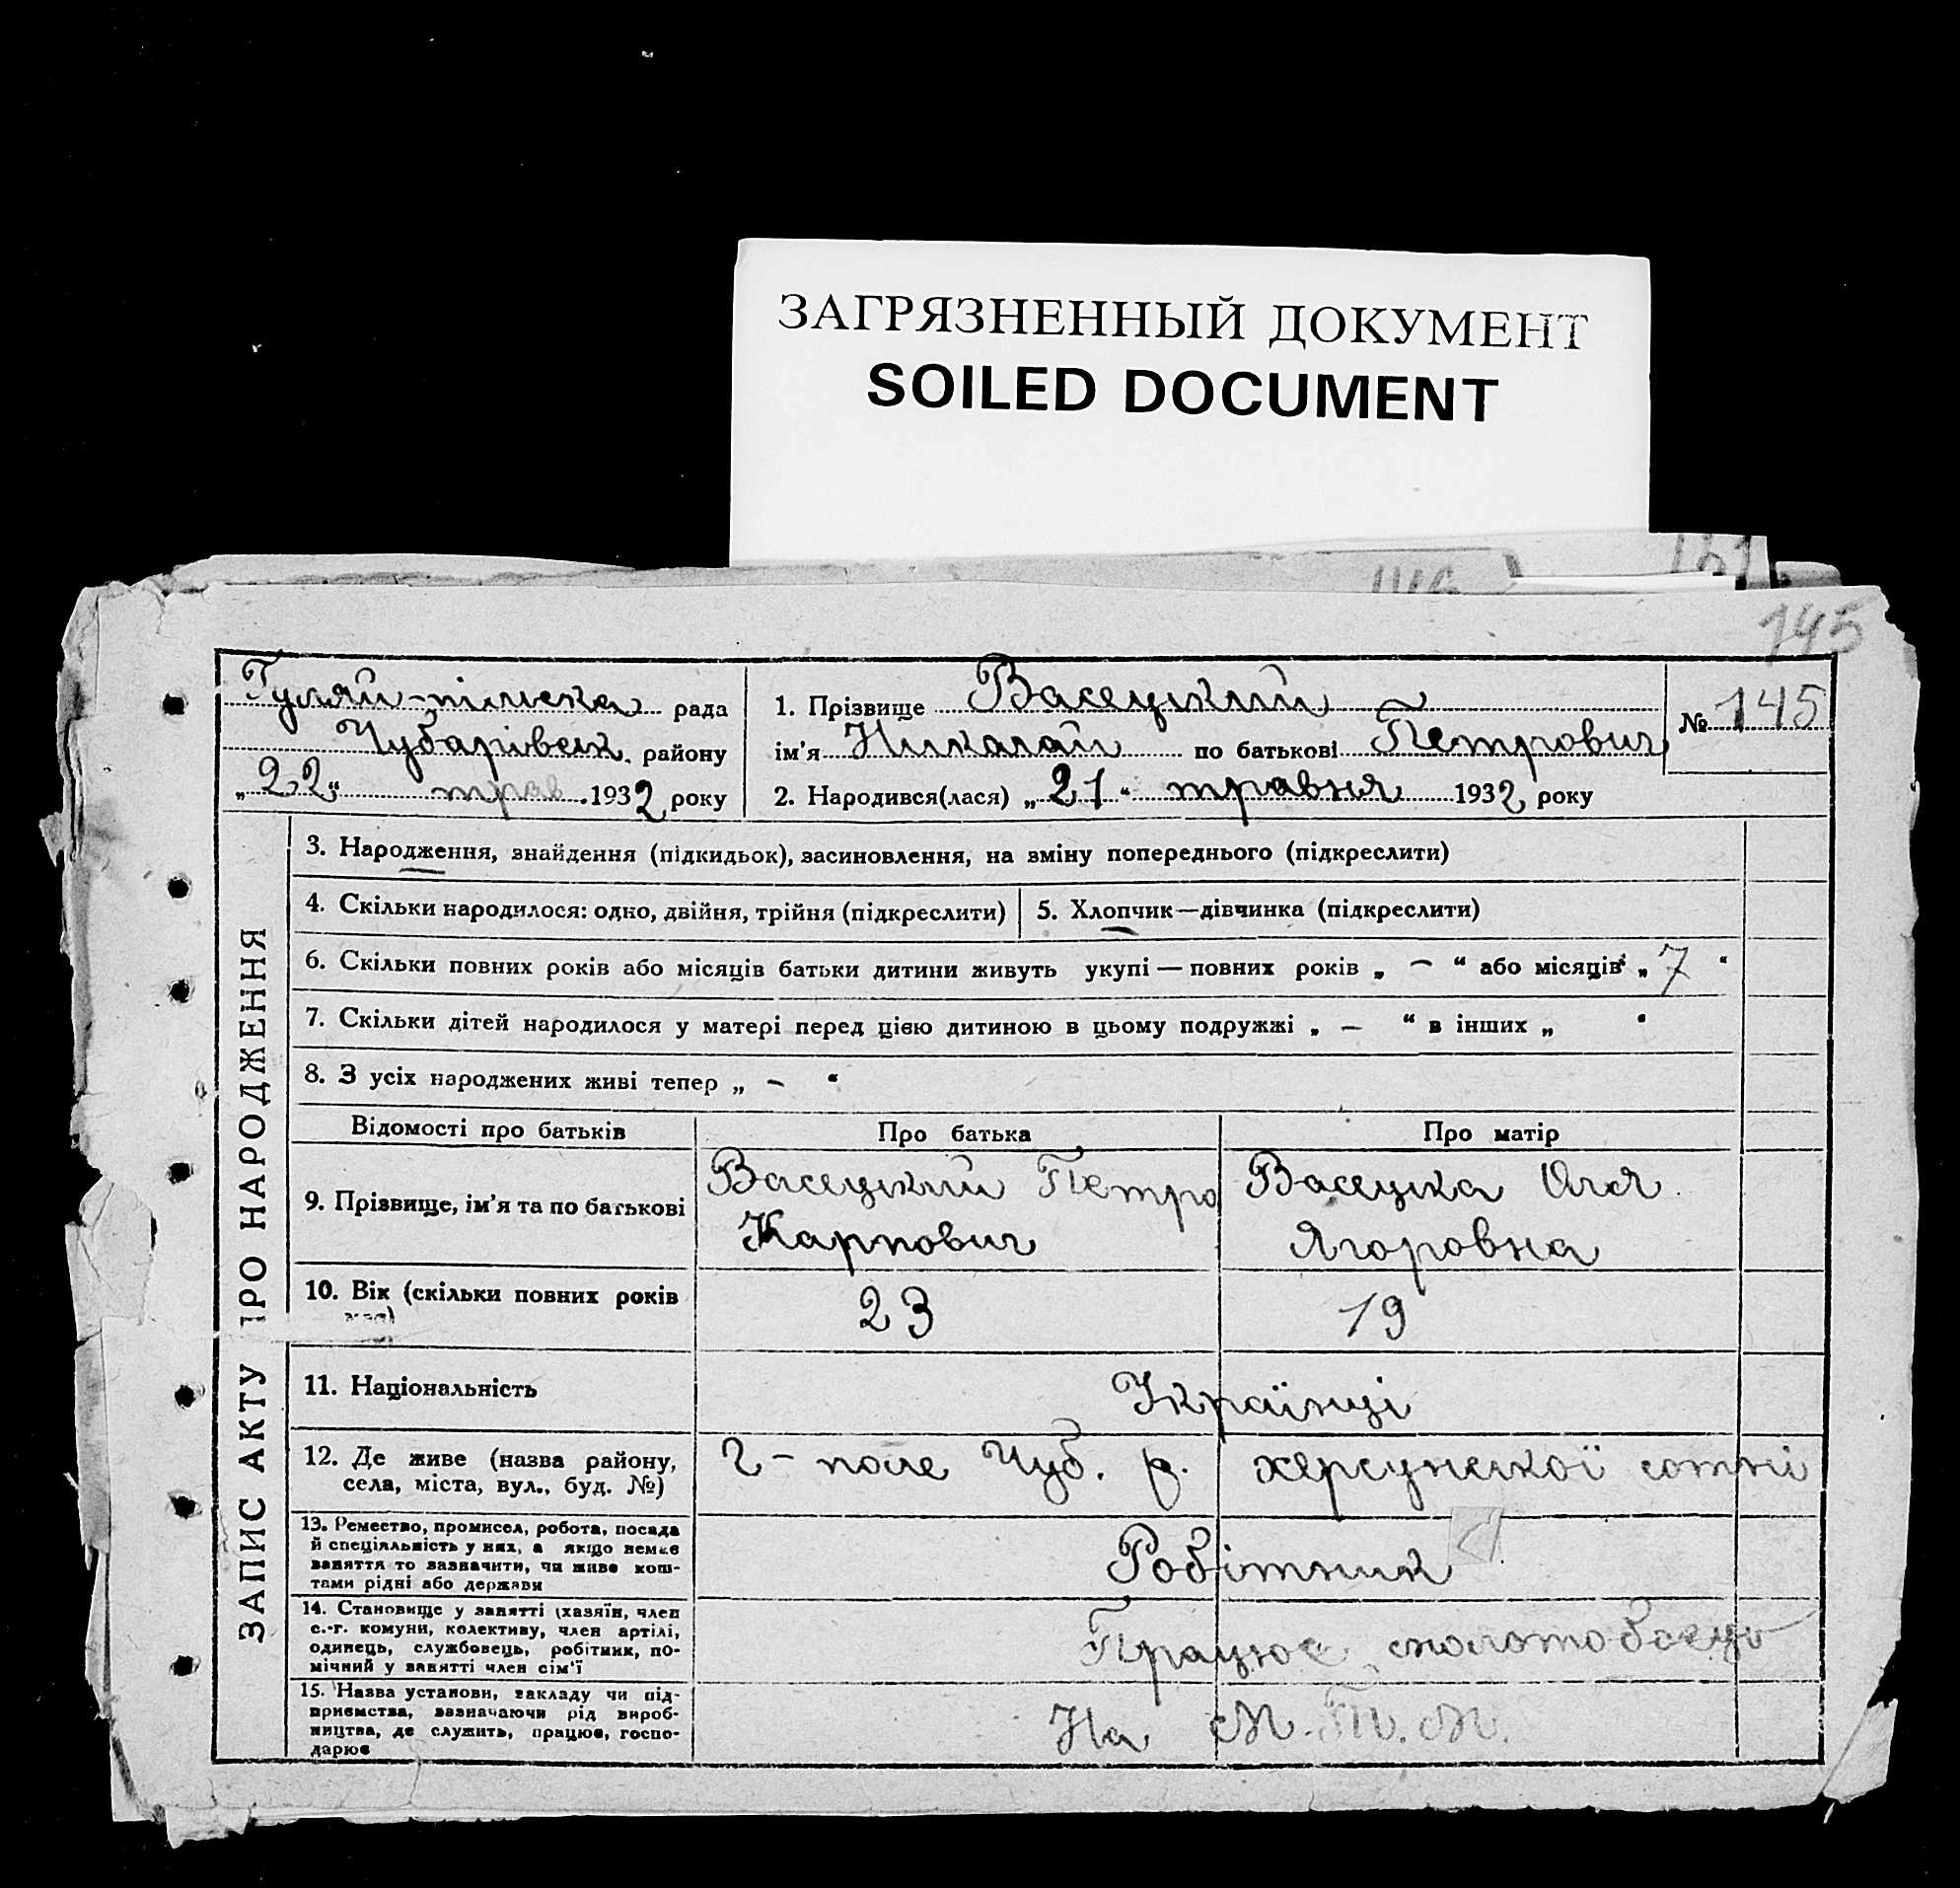 ЗАГРЯЗНЕННЫЙ ДОКУМЕНТ
SOILED DOCUMENT
145
Гуляй-пільска рада
Чубарівськ. району
„22“ трав .1932 року
1. Прізвище Васецький
ім'я Николай по батькові Петрович
2. Народився(лася) „21“ травня 1932 року
№ 145
ЗАПИС АКТУ ПРО НАРОДЖЕННЯ
3. Народження, знайдення (підкидьок), засиновлення, на зміну попереднього (підкреслити)
4. Скільки народилося: одно, двійня, трійня (підкреслити)
5. Хлопчик—дівчинка (підкреслити)
6. Скільки повних років або місяців батьки дитини живуть укупі — повних років „ — “ або місяців „ 7 “
7. Скільки дітей народилося у матері перед цією дитиною в цьому подружжі „ — “ в інших „ “
8. З усіх народжених живі тепер „ — “
Відомості про батьків
Про батька
Про матір
9. Прізвище, ім'я та по батькові
Васецький Петро
Карпович
Васецка Оля
Ягоровна
10. Вік (скільки повних років
має)
23
19
11. Національність
Українці
12. Де живе (назва району,
села, міста, вул., буд. №)
Г-поле Чуб. р. херсунської сотні
13. Ремество, промисел, робота, посада
й спеціяльність у них, а якщо немає
заняття то зазначити, чи живе кош-
тами рідні або держави
Робітник
14. Становище у занятті (хазяїн, член
с.-г. комуни, колективу, член артілі,
одинець, службовець, робітник, по-
мічний у занятті член сім'ї
Працює молотобоець
15. Назва установи, закладу чи під-
приємства, зазначаючи рід вироб-
ництва, де служить, працює, госпо-
дарює
На М.Т.М.